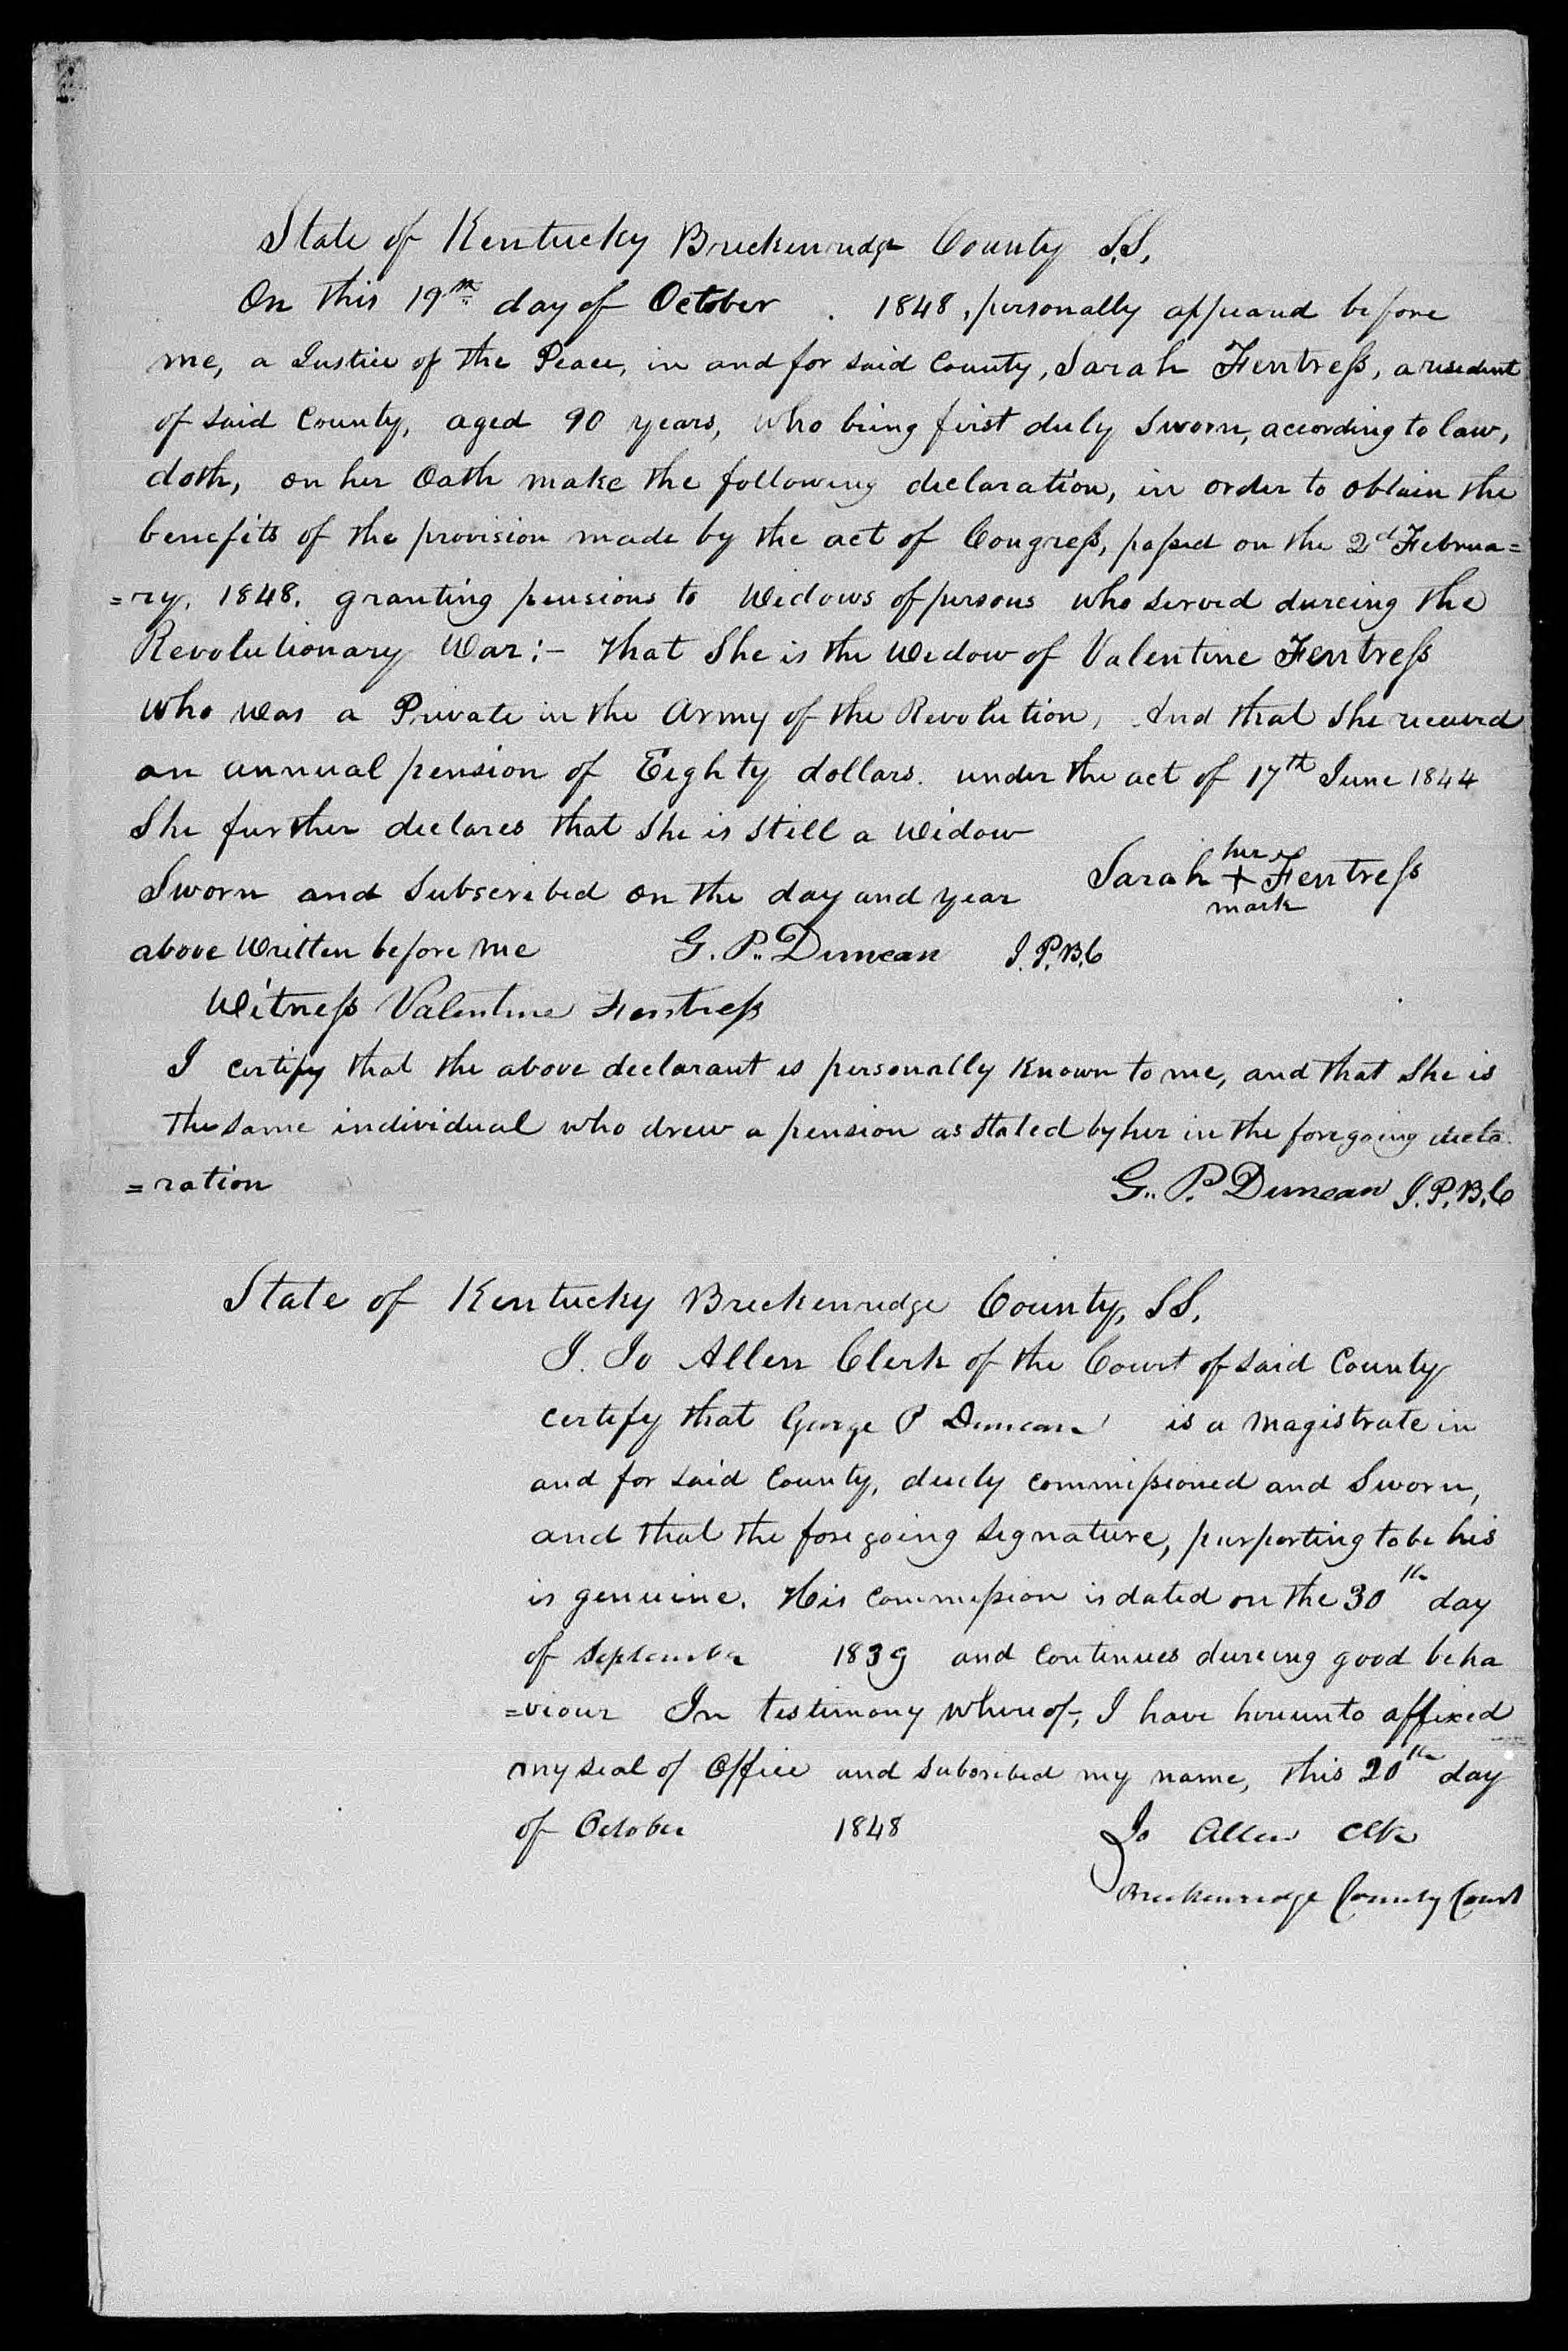 State of Kentucky Breckenridge County S.S.
On this 19th day of October . 1848, personally appeared before
me, a Justice of the Peace, in and for said County, Sarah Fentress, a resident
of said County, aged 90 years, who being first duly Sworn, according to law,
doth, on her Oath make the following declaration, in order to obtain the
benefits of the provision made by the act of Congress, passed on the 2d Februa=
=ry, 1848. granting pensions to Widows of persons who served dureing the
Revolutionary War:- that She is the Widow of Valentine Fentress
who was a Private in the Army of the Revolution, And that she received
an annual pension of Eighty dollars. under the act of 17th June 1844
She further declares that She is Still a Widow
her
Sarah + Fentress
mark
Sworn and Subscribed on the day and year
above Written before me G. P. Duncan J.P.B.C
Witness Valentine Fentress
I certify that the above declarant is personally Known to me, and that She is
the same individual who drew a pension as stated by her in the foregoing decla
=ration G. P. Duncan J.P.B.C
State of Kentucky Breckenridge County, SS.
I. Jo Allen Clerk of the Court of said County
certify that George P Duncan is a Magistrate in
and for said County, duly commissioned and Sworn,
and that the foregoing Signature, purporting to be his
is genuine. His Commission is dated on the 30th day
of September 1839 and Continues dureing good beha
=viour In testimony whereof, I have hereunto affixed
my seal of Office and subscribed my name, this 20th day
of October 1848 Jo Allen Clk
Breckenridge County Court